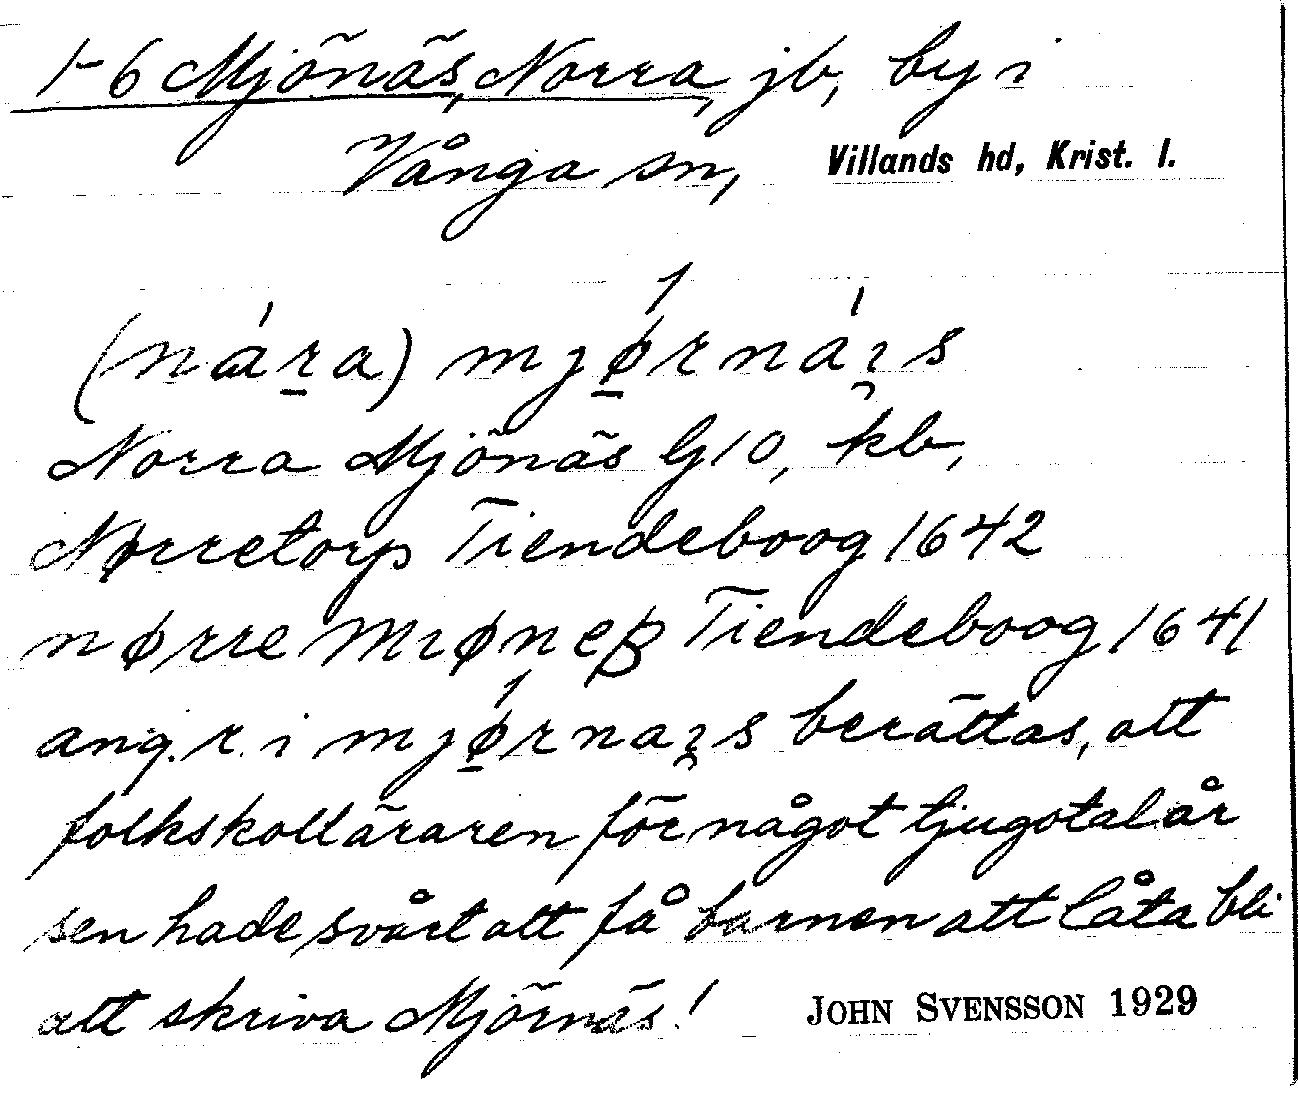 1-6 Mjönäs, Norra, jb, by i
Vånga sn, Villands hd, Krist. l.
(nára) mjǿ̱rnáɪ̯s
Norra Mjönäs G10, kb,
Nørretorp Tiendeboog 1642
nørre Miøneß Tiendeboog 1641
ang. r. i mjǿ̱rnaɪ̯s berättas, att
folkskolläraren för något tjugotal år
sen hade svårt att få barnen att låta bli
att skriva Mjörnäs!
JOHN SVENSSON 1929